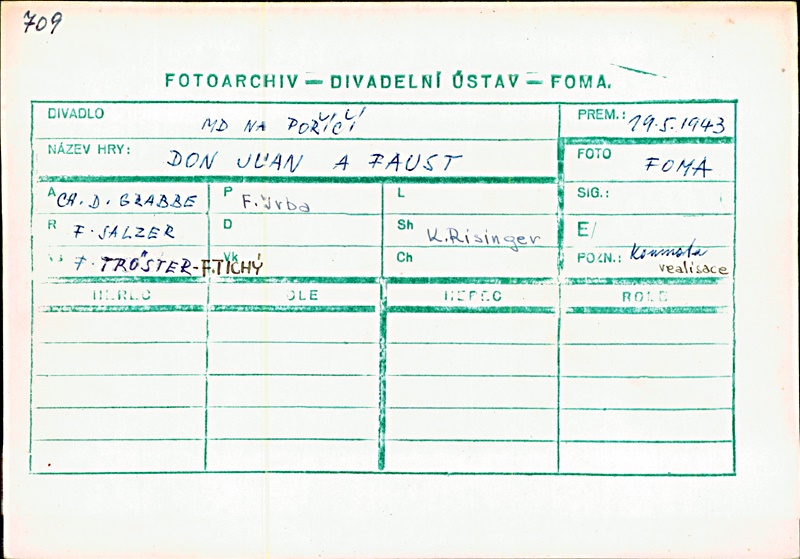 709
FOTOARCHIV — DIVADELNÍ ÚSTAV — FOMA.
DIVADLO MD NA POŘÍČÍ PREM.: 19.5.1943
NÁZEV HRY: DON JUAN A FAUST FOTO FOMA
A CH. D. GRABBE P F. Vrba L SIG.:
R F. SALZER D Sh K. Risinger E/
F. TRÖSTER - F. TICHÝ Vk Ch POZN.:
realisace
HEREC OLE HEREC ROLE